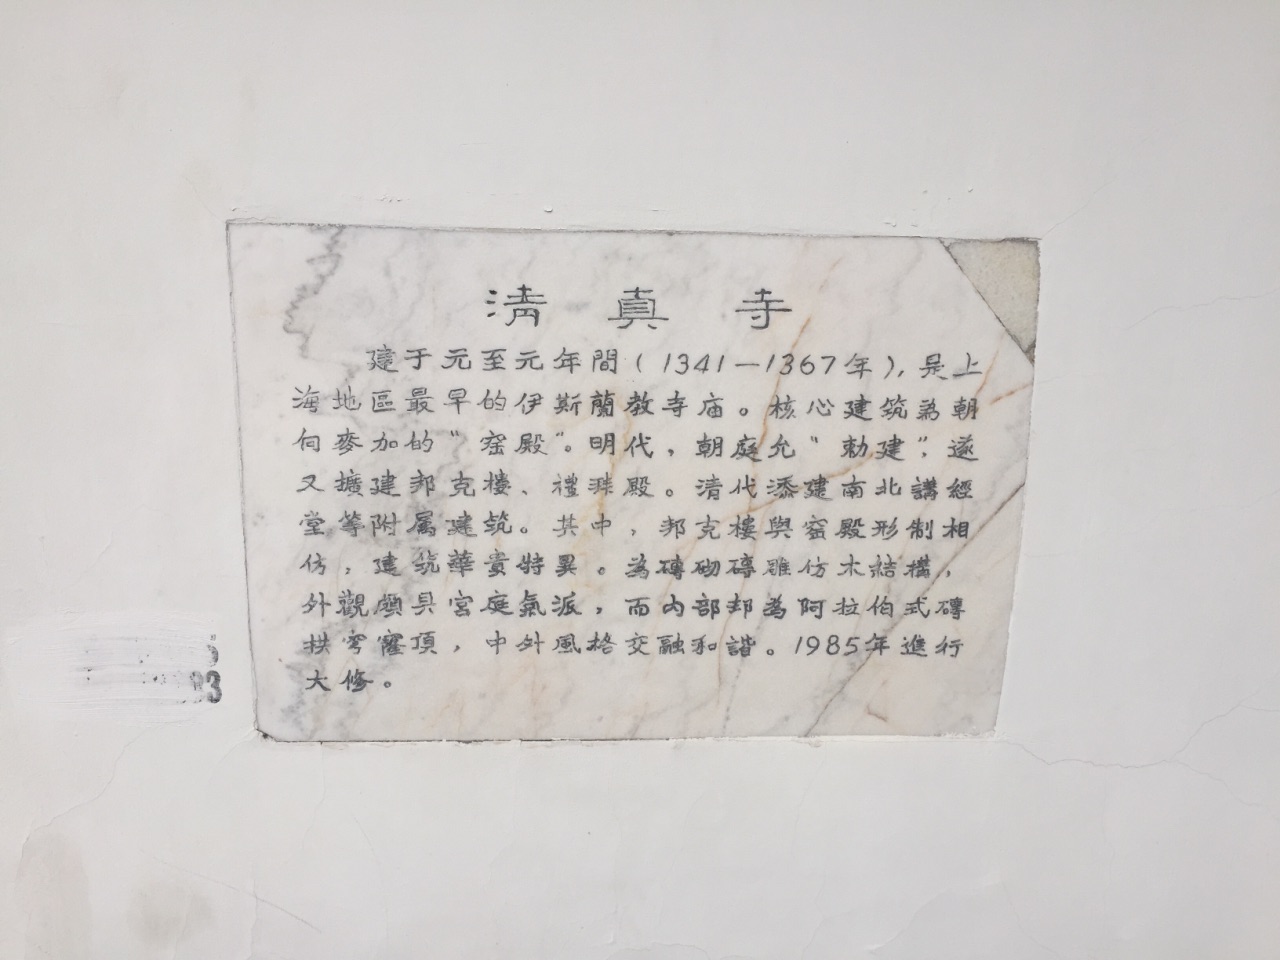 清真寺
建于元至元年間（1341—1367年），是上
海地區最早的伊斯蘭教寺庙。核心建筑為朝
向麥加的“窑殿”。明代，朝庭允“勅建”，遂
又擴建邦克樓、禮拜殿。清代添建南北講經
堂等附属建筑。其中，邦克樓與窑殿形制相
仿，建筑華貴特異。為磚砌磚雕仿木結構，
外觀頗具宮庭氣派，而内部却為阿拉伯式磚
拱穹窿頂，中外風格交融和諧。1985年進行
大修。